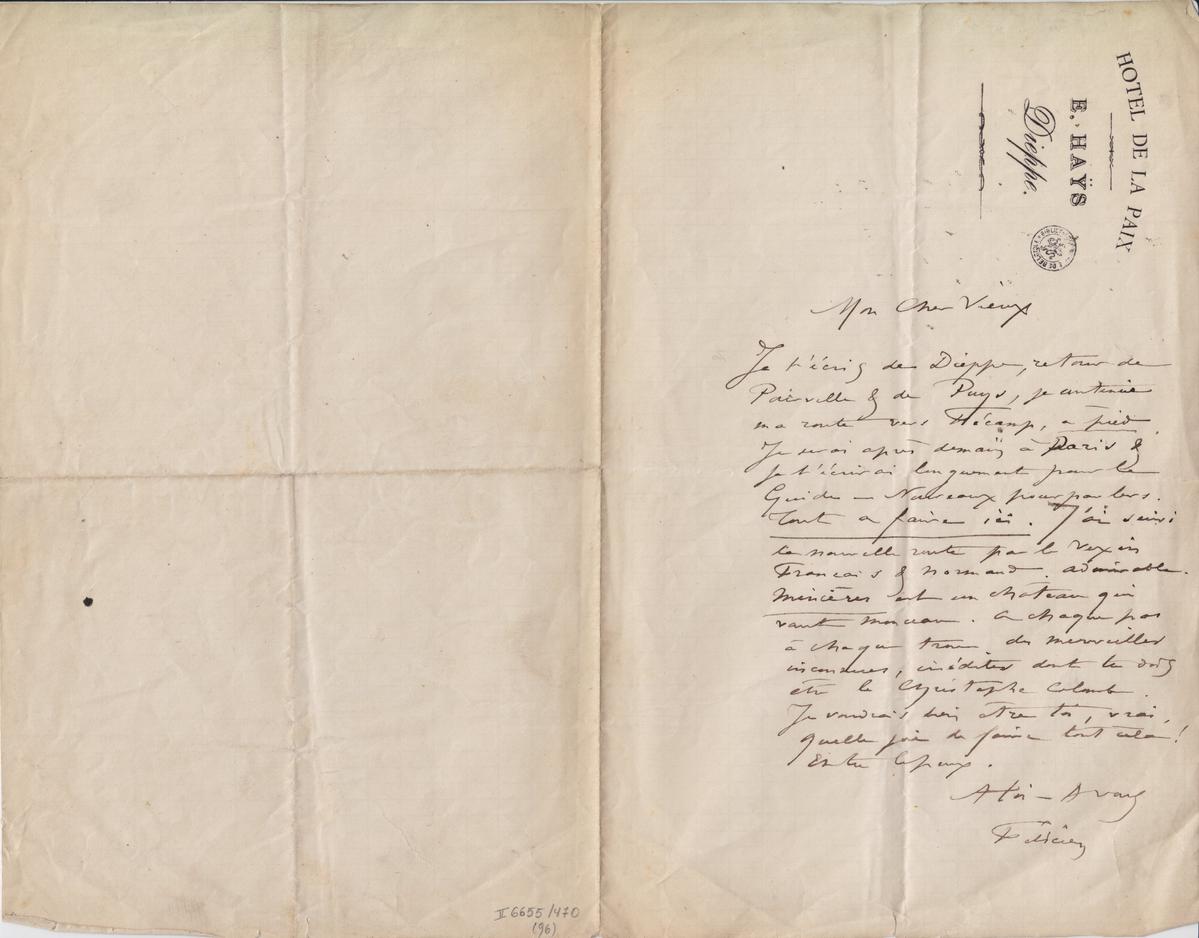 HOTEL DE LA PAIX
E. HAŸS
Dieppe.
Mon Cher Vieux
Je t'écris de Dieppe, retour de
Pourville & de Puys, je continue
ma route vers Fécamp, à pied.
Je serai après demain à Paris &
je t'écrirai longuement pour le
Guide — Nouveaux pourparlers.
Tout a faire ici. J'ai suivi
la nouvelle route par le Vexin
Français & Normand. admirable.
est un chateau qui
vaut . A chaque pas
à chaque trou des merveilles
inconnues, inédites dont tu dois
être le Christophe Colomb.
Je voudrais bien etre toi, vrai,
quelle joie de faire tout cela!
Entre .
A toi — A vous
Félicien
II 6655/470
(96)